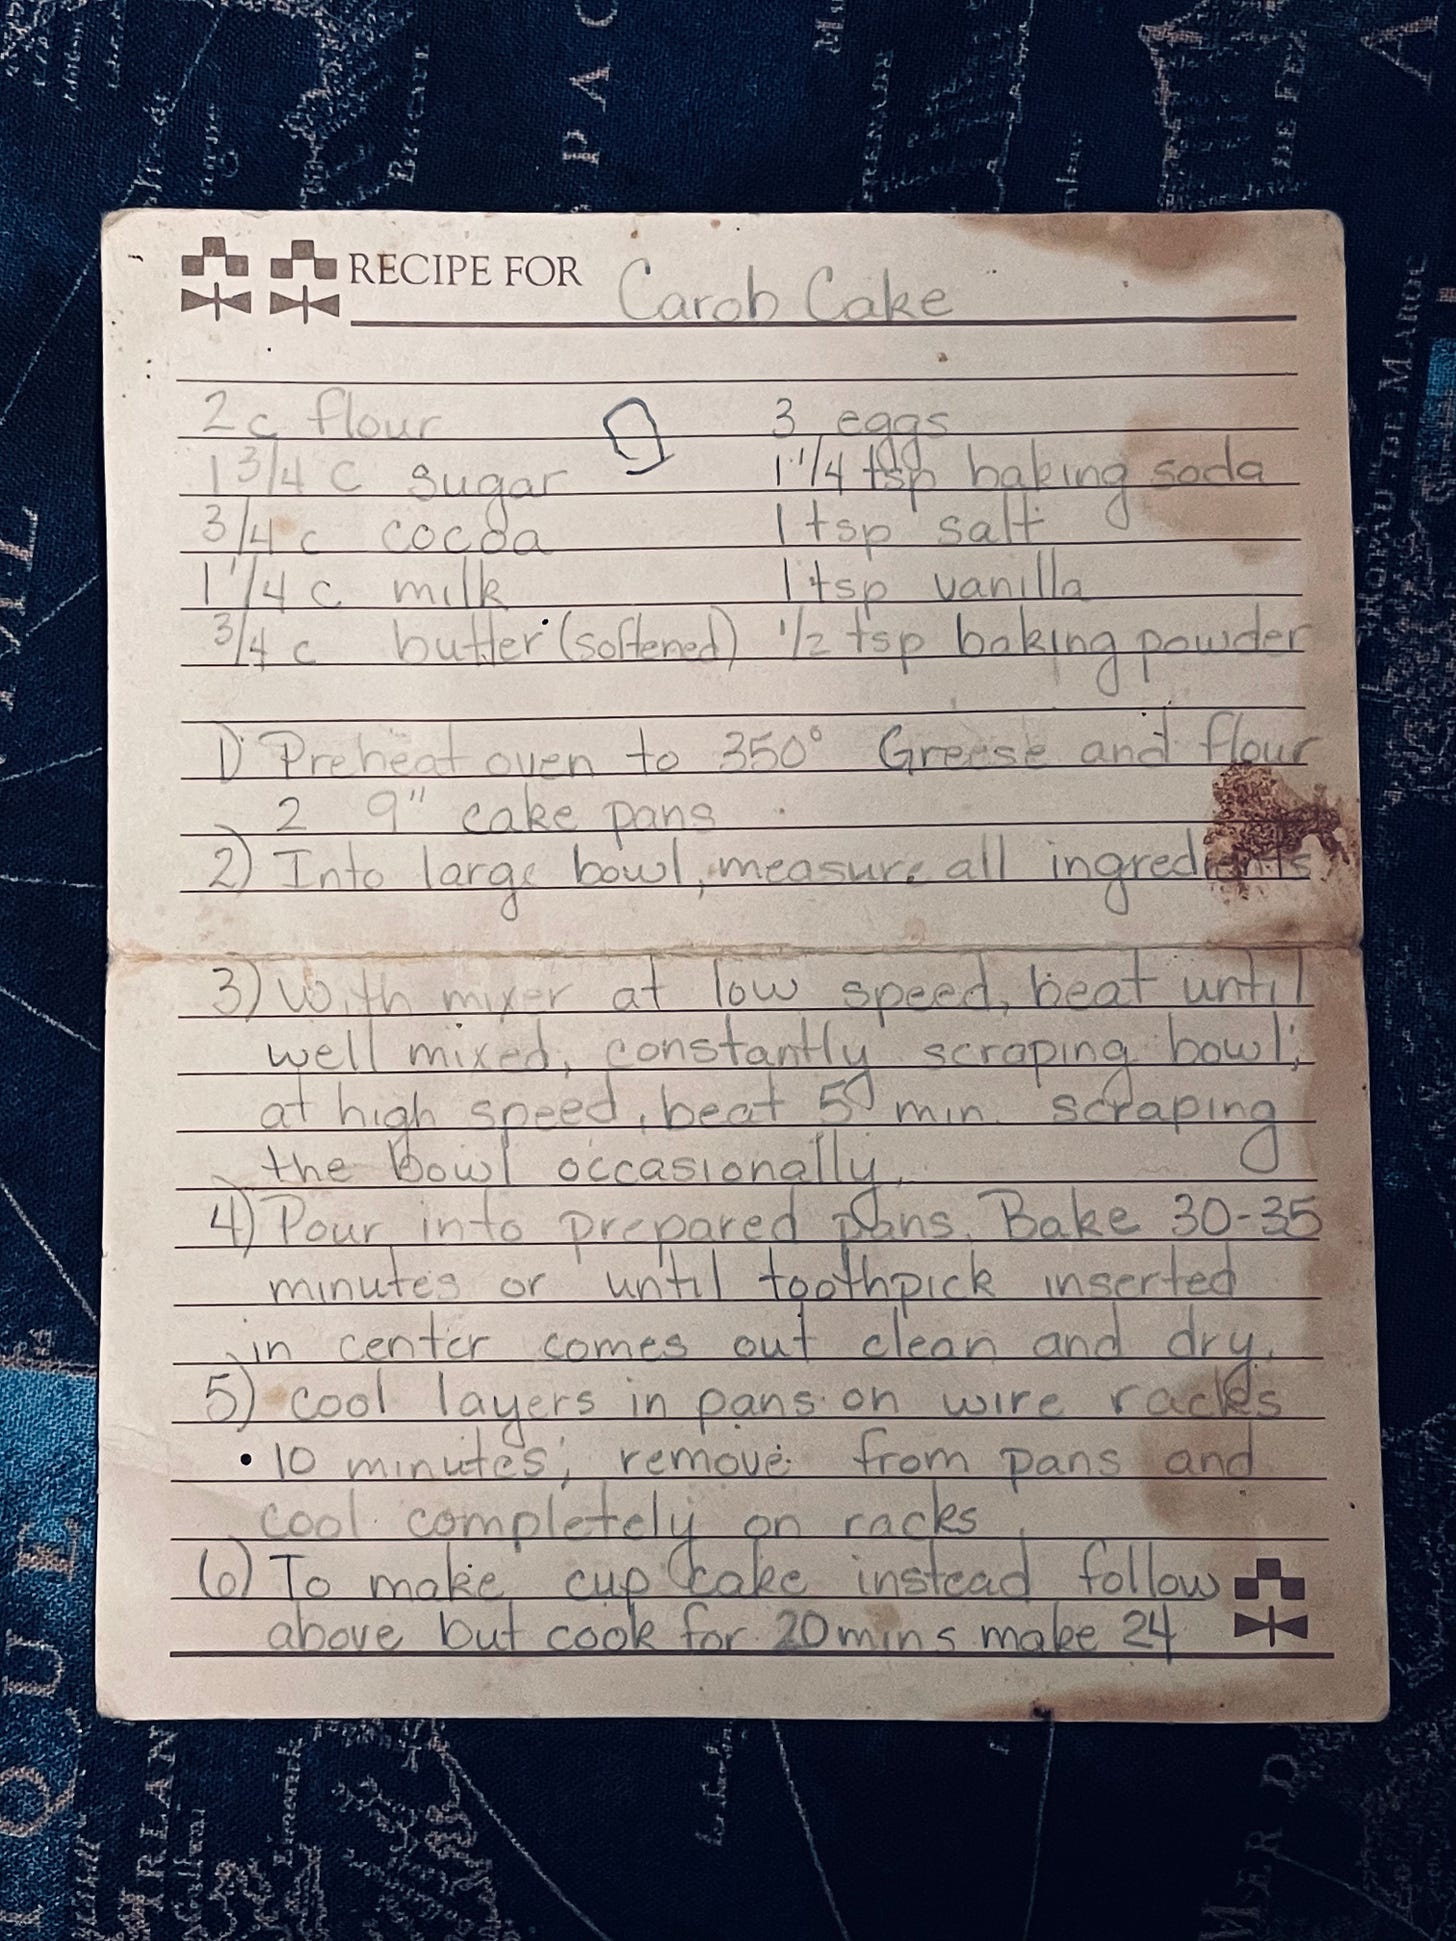 RECIPE FOR Carob Cake
2 c flour 3 eggs
1 3/4 c sugar 1 1/4 tsp baking soda
3/4 c cocoa 1 tsp salt
1 1/4 c milk 1 tsp vanilla
3/4 c butter (softened) 1/2 tsp baking powder
1) Preheat oven to 350° Greese and flour
2 9" cake pans
2) Into large bowl, measure all ingredients
3) With mixer at low speed, beat until
well mixed, constantly scraping bowl;
at high speed, beat 5 min. scraping
the bowl occasionally.
4) Pour into prepared pans. Bake 30-35
minutes or until toothpick inserted
in center comes out clean and dry.
5) cool layers in pans on wire racks
10 minutes; remove from pans and
cool completely on racks
6) To make cup cake instead follow
above but cook for 20 mins make 24